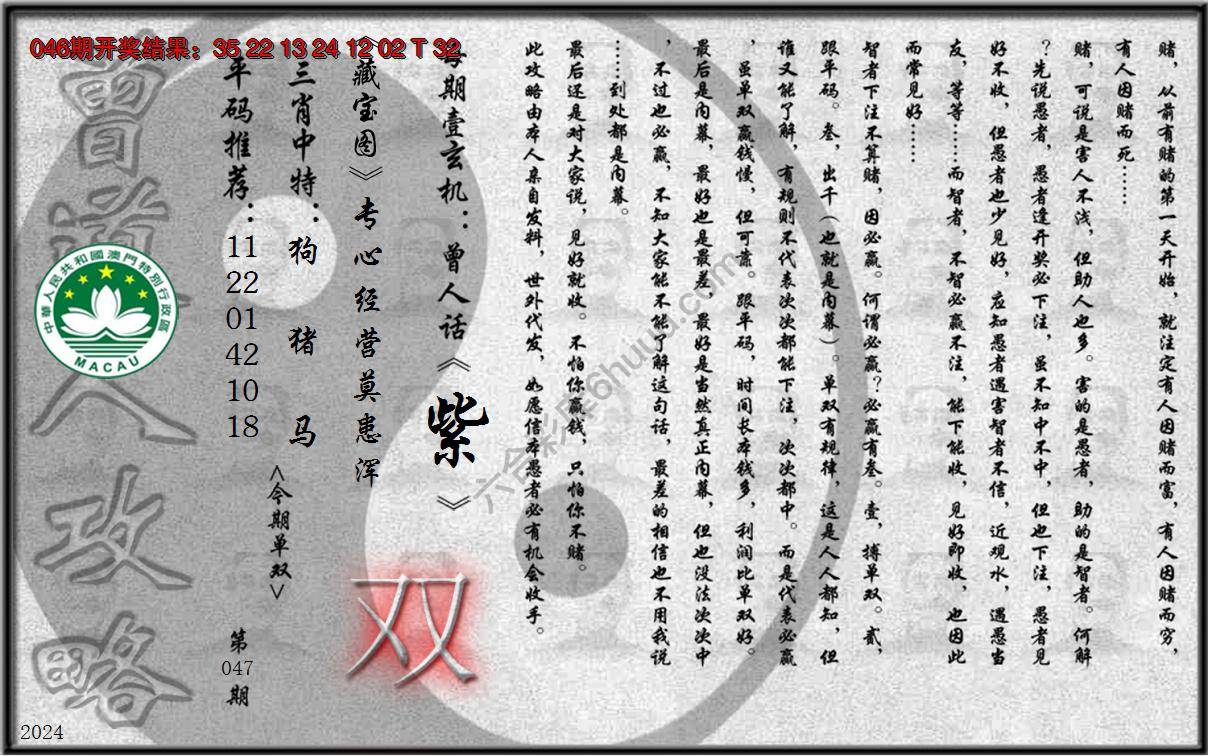 046期开奖结果：35 22 13 24 12 02 T 32
赌，从前有赌的第一天开始，就注定有人因赌而富，有人因赌而穷，
有人因赌而死……
赌，可说是害人不浅，但助人也多。害的是愚者，助的是智者。何解
？先说愚者，愚者逢开奖必下注，虽不知中不中，但也下注，愚者见
好不收，但愚者也少见好，应知愚者遇害智者不信，近观水，遇愚当
友，等等……而智者，不智必赢不注，能下能收，见好即收，也因此
而常见好……
智者下注不算赌，因必赢。何谓必赢？必赢有叁。壹，搏单双。贰，
跟平码。叁，出千（也就是内幕）。单双有规律，这是人人都知，但
谁又能了解，有规则不代表次次都能下注，次次都中。而是代表必赢
，虽单双赢钱慢，但可靠。跟平码，时间长本钱多，利润比单双好。
最后是内幕，最好也是最差，最好是当然真正内幕，但也没法次次中
，不过也必赢，不知大家能不能了解这句话，最差的相信也不用我说
……到处都是内幕。
最后还是对大家说，见好就收。不怕你赢钱，只怕你不赌。
此攻略由本人亲自发料，世外代发，如愿信本愚者必有机会收手。
每期壹玄机：曾人话《紫》
《藏宝图》专心经营莫患浑
双
三肖中特：狗 猪 马
<今期单双>
平码推荐：11 22 01 42 10 18
第047期
曾道人攻略
中華人民共和國澳門特別行政區
MACAU
2024